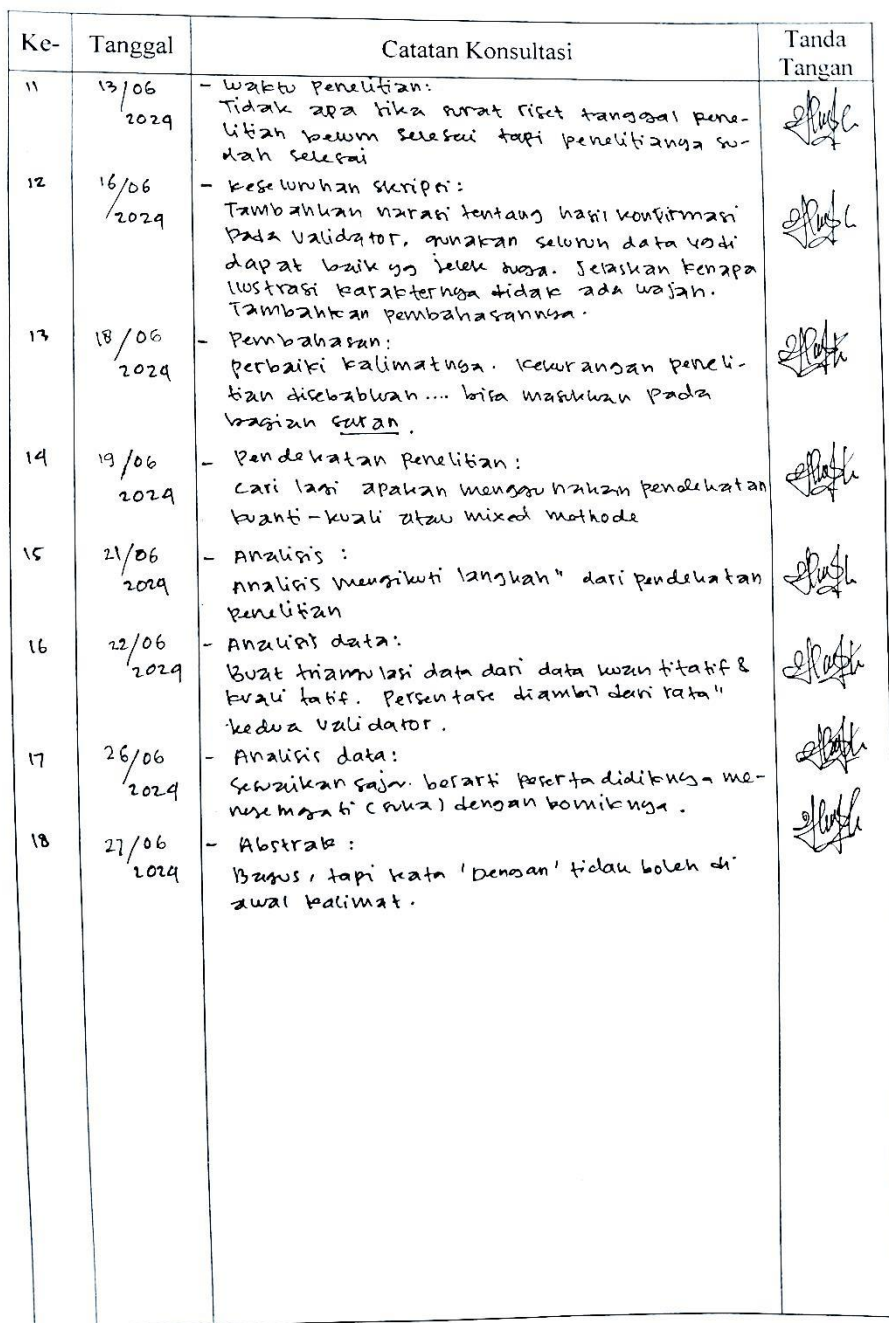 Ke- Tanggal Catatan Konsultasi Tanda Tangan
11 13/06 2024 - Waktu Penelitian:
Tidak apa jika surat riset tanggal pene-
litian belum selesai tapi penelitianya su-
dah selesai
12 16/06 2024 - Keseluruhan skripsi:
Tambahkan narasi tentang hasil konfirmasi
pada validator, gunakan seluruh data yg di
dapat baik yg jelek juga. Jelaskan kenapa
ilustrasi karakternya tidak ada wajah.
Tambahkan pembahasannya.
13 18/06 2024 - Pembahasan:
perbaiki kalimatnya. Kekurangan peneli-
tian disebabkan .... bisa masukkan pada
bagian saran.
14 19/06 2024 - Pendekatan penelitian:
Cari lagi apakah menggunakan pendekatan
kuanti-kuali atau mixed methode
15 21/06 2024 - Analisis :
Analisis mengikuti langkah" dari pendekatan
penelitian
16 22/06 2024 - Analisis data:
Buat triangulasi data dari data kuantitatif &
kualitatif. Persentase diambil dari rata"
kedua validator.
17 26/06 2024 - Analisis data:
Sesuaikan saja. berarti peserta didiknya me-
nyemgati (suka) dengan komiknya.
18 27/06 2024 - Abstrak :
Bagus, tapi kata 'Dengan' tidak boleh di
awal kalimat.